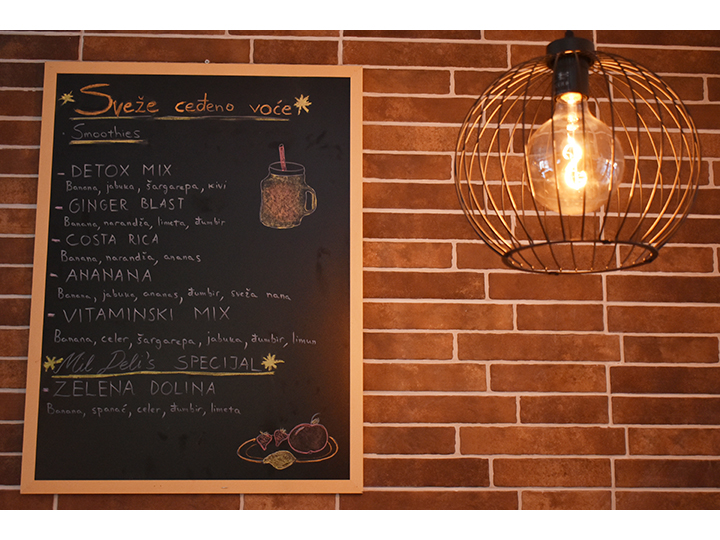 Sveže ceđeno voće
Smoothies
- DETOX MIX
Banana, jabuka, šargarepa, kivi
- GINGER BLAST
Banana, narandža, limeta, đumbir
- COSTA RICA
Banana, narandža, ananas
- ANANANA
Banana, jabuka, ananas, đumbir, sveža nana
- VITAMINSKI MIX
Banana, celer, šargarepa, jabuka, đumbir, limun
Mil Deli's SPECIJAL
- ZELENA DOLINA
Banana, spanać, celer, đumbir, limeta